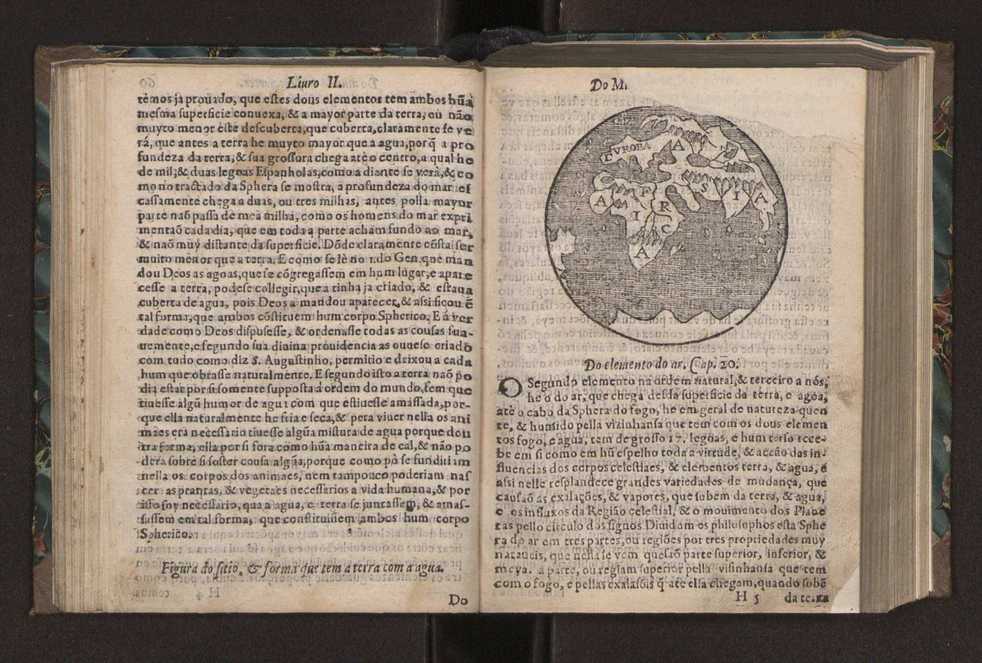 Liuro II.
tèmos ja prouado, que estes dous elementos tem ambos hũa
mesma superficie conuexa, & a mayor parte da terra, ou não
muyto menor é the descuberta, que cuberta, claramente se ve
rá, que antes a terra he muyto mayor que a agua, porq̃ a pro
fundeza da terra, & sua grossura chega atè o centro, a qual he
de mil; & duas legoas Espanholas, como a diante se verà, & co
mo no tractado da Sphera se mostra, a profundeza do mar es
cassamente chega a duas, ou tres milhas, antes polla mayor
parte não passa de mea milha, como os homens do mar expri
mentaõ cada dia, que em toda a parte acham fundo ao mar,
& naõ muy distante da superficie. Dõde claramente cõsta ser
muito menor que a terra. E como se lè no 1. do Gen. que man
dou Deos as agoas, que se cõgregassem em hum lugar, e apare
cesse a terra, podese collegir, que a tinha ja criado, & estaua
cuberta de agua, pois Deos a mandou aparecer, & assi ficou ẽ
tal forma, que ambos cõstituem hum corpo Spherico. E á ver
dade como Deos dispusesse, & ordenasse todas as cousas sua-
uemente, e segundo sua diuina prouidencia as ouuese criado
com tudo como diz S. Augustinho, permitio e deixou a cada
hum que obrasse naturalmente. E segundo isto a terra naõ po
dia estar por si somente supposta a ordem do mundo, sem que
tiuesse algũ humor de agua com que estiuesse amassada, por-
que ella naturalmente he fria e seca, & pera viuer nella os ani
mães era necessario tiuesse algũa mistura de agua porque dou
tra forma, ella por si fora como hũa maneira de cal, & não po
dera sobre si soster cousa algũa, porque como pò se fundiriam
nella os corpos dos animaes, nem tampouco poderiam nas
cer as prantas, & vegetaes necessarios a vida humana, & por
isto foy necessario, que a agua, e terra se juntassem, & amas-
sassem em tal forma, que constituissem ambos hum corpo
Spherico.
Figura do sitio, & forma que tem a terra com a agua.
H 4
Do
Do M.
EVROPA
A
S
I
A
A
F
R
I
C
A
Do elemento do ar. Cap. 20.
O Segundo elemento na ordem natural, & terceiro a nós,
he o do ar, que chega desda superficie da terra, e agoa,
atè o cabo da Sphera do fogo, he em geral de natureza quen
te, & humido pella vizinhansa que tem com os dous elemen
tos fogo, e agua, tem de grosso 17. legoas, e hum terso rece-
be em si como em hũ espelho toda a virtude, & acção das in-
fluencias dos corpos celestiaes, & elementos terra, & agua, e
assi nelle resplandece grandes variedades de mudança, que
causaõ as exalações, & vapores, que subem da terra, & agua,
e os influxos da Região celestial, & o mouimento dos Plane
tas pello circulo dos signos Diuidam os philosophos esta Sphe
ra do ar em tres partes, ou regiões por tres propriedades muy
nataueis, que nesta se vem que saõ parte superior, inferior, &
meya. a parte, ou regiam superior pella visinhansa que tem
com o fogo, e pellas exalasõis q̃ atè ella chegam, quando sobẽ
H 5
da terra